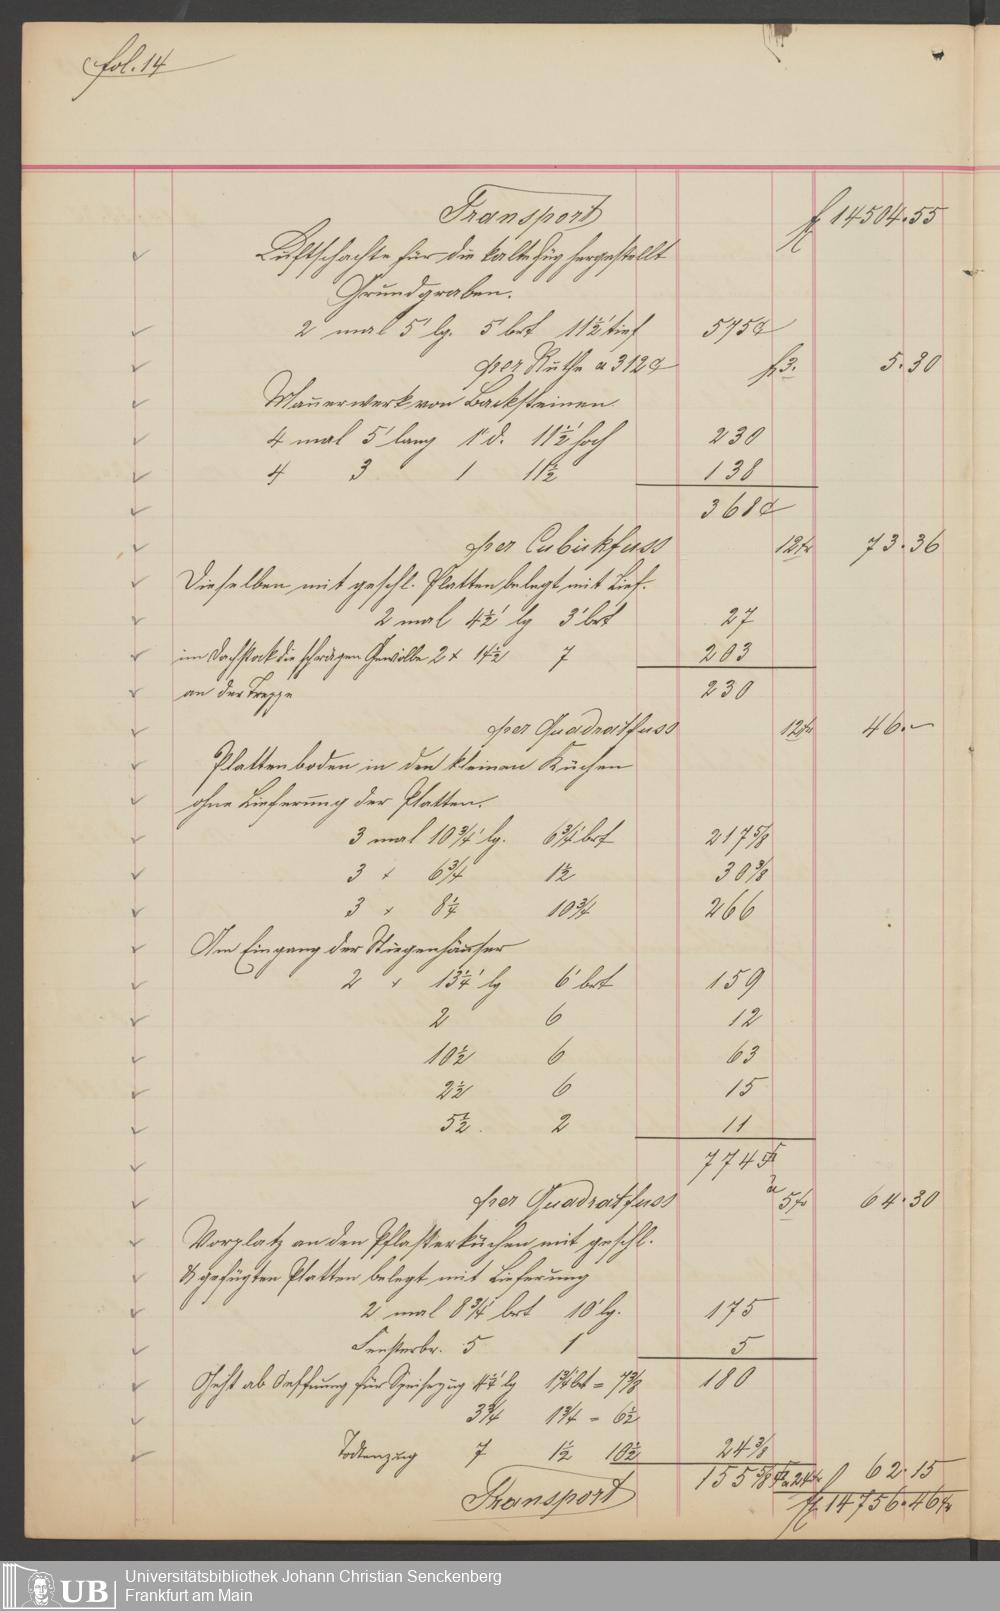 fol. 14
Transport fl 14504.55
Luftschachte für die kalte Züg hergestellt
Grundgraben.
2 mal 5' lg. 5' brt 11½' tief 575
per Ruthe a 312 fl 3. 5.30
Mauerwerk von Backsteinen
4 mal 5' lang 1' d. 11½' hoch 230
4 3 1 11½ 138
368
per Cubickfuss 12 kr 73.36
Dieselben mit geschl. Platten belegt mit Lief.
2 mal 4½' lg 3' brt 27
im Dachstock die schrägen Gewölbe 2 × 14½ 7 203
an der Treppe 230
per Quadratfuss 12 kr 46.–
Plattenboden in den kleinen Küchen
ohne Lieferung der Platten.
3 mal 10¾' lg. 6¾' brt 217⅝
3 × 6¾ 1½ 30⅜
3 × 8¼ 10¾ 266
Am Eingang der Stiegenhäuser
2 × 13¼' lg 6' brt 159
2 6 12
10½ 6 63
2½ 6 15
5½ 2 11
774
per Quadratfuss a 5 kr 64.30
Vorplatz an den Pflasterküchen mit geschl.
& gefügten Platten belegt mit Lieferung
2 mal 8¾' brt 10' lg. 175
Fensterbr. 5 1 5
Geht ab Oeffnung für Speisezug 4¼' lg 1¾' brt = 7⅜ 180
3¾ 1¾ = 6½
Todtenzug 7 1½ 10½ 24⅜
155⅝ a 24 kr 62.15
Transport fl 14756.46 kr
UB
Universitätsbibliothek Johann Christian Senckenberg
Frankfurt am Main